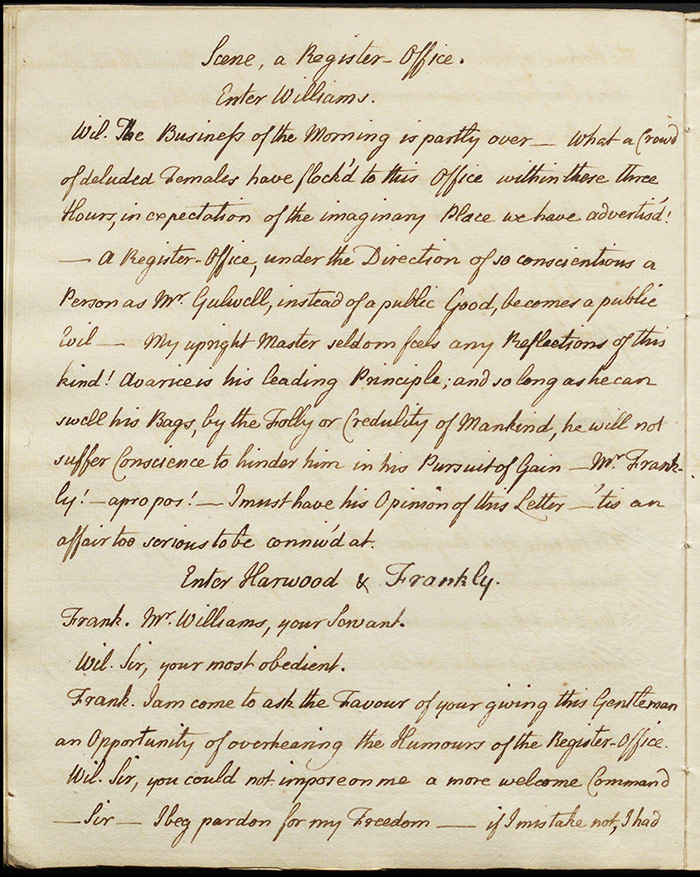 Scene, a Register-Office.
Enter Williams.
Wil. The Business of the Morning is partly over — What a Crowd
of deluded Females have flock'd to this Office within these three
Hours, in expectation of the imaginary Place we have advertis'd!
— A Register-Office, under the Direction of so conscientious a
Person as Mr. Gulwell, instead of a public Good, becomes a public
Evil — My upright Master seldom feels any Reflections of this
kind! Avarice is his leading Principle; and so long as he can
swell his Bags, by the Folly or Credulity of Mankind, he will not
suffer Conscience to hinder him in his Pursuit of Gain — Mr. Frank-
ly! — apropos! — I must have his Opinion of this Letter — 'tis an
affair too serious to be conniv'd at.
Enter Harwood & Frankly.
Frank. Mr. Williams, your Servant.
Wil. Sir, your most obedient.
Frank. I am come to ask the Favour of your giving this Gentleman
an Opportunity of overhearing the Humours of the Register-Office.
Wil. Sir, you could not impose on me a more welcome Command
— Sir — I beg pardon for my Freedom — if I mistake not, I had